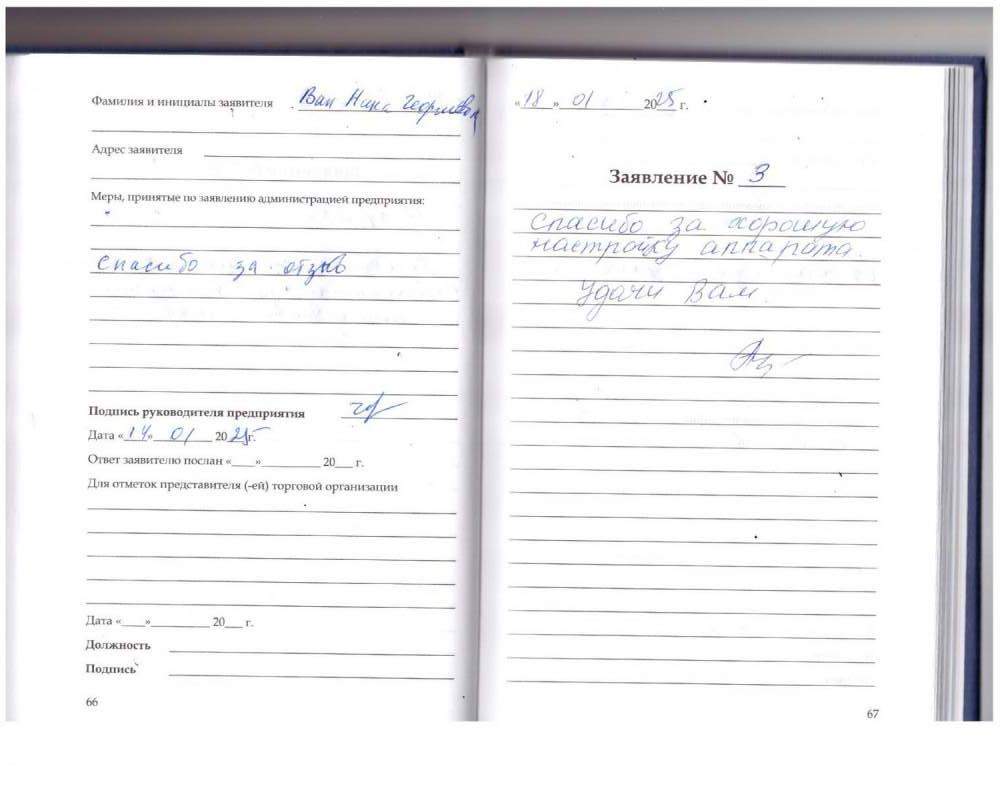 Фамилия и инициалы заявителя Ван Нина Георгиевна
Адрес заявителя
Меры, принятые по заявлению администрацией предприятия:
Спасибо за отзыв
Подпись руководителя предприятия
Дата «14» 01 2025г.
Ответ заявителю послан «____»__________ 20___ г.
Для отметок представителя (-ей) торговой организации
Дата «____»__________ 20___ г.
Должность
Подпись
66
«18» 01 2025 г.
Заявление № 3
Спасибо за хорошую
настройку аппарата.
Удачи Вам.
67